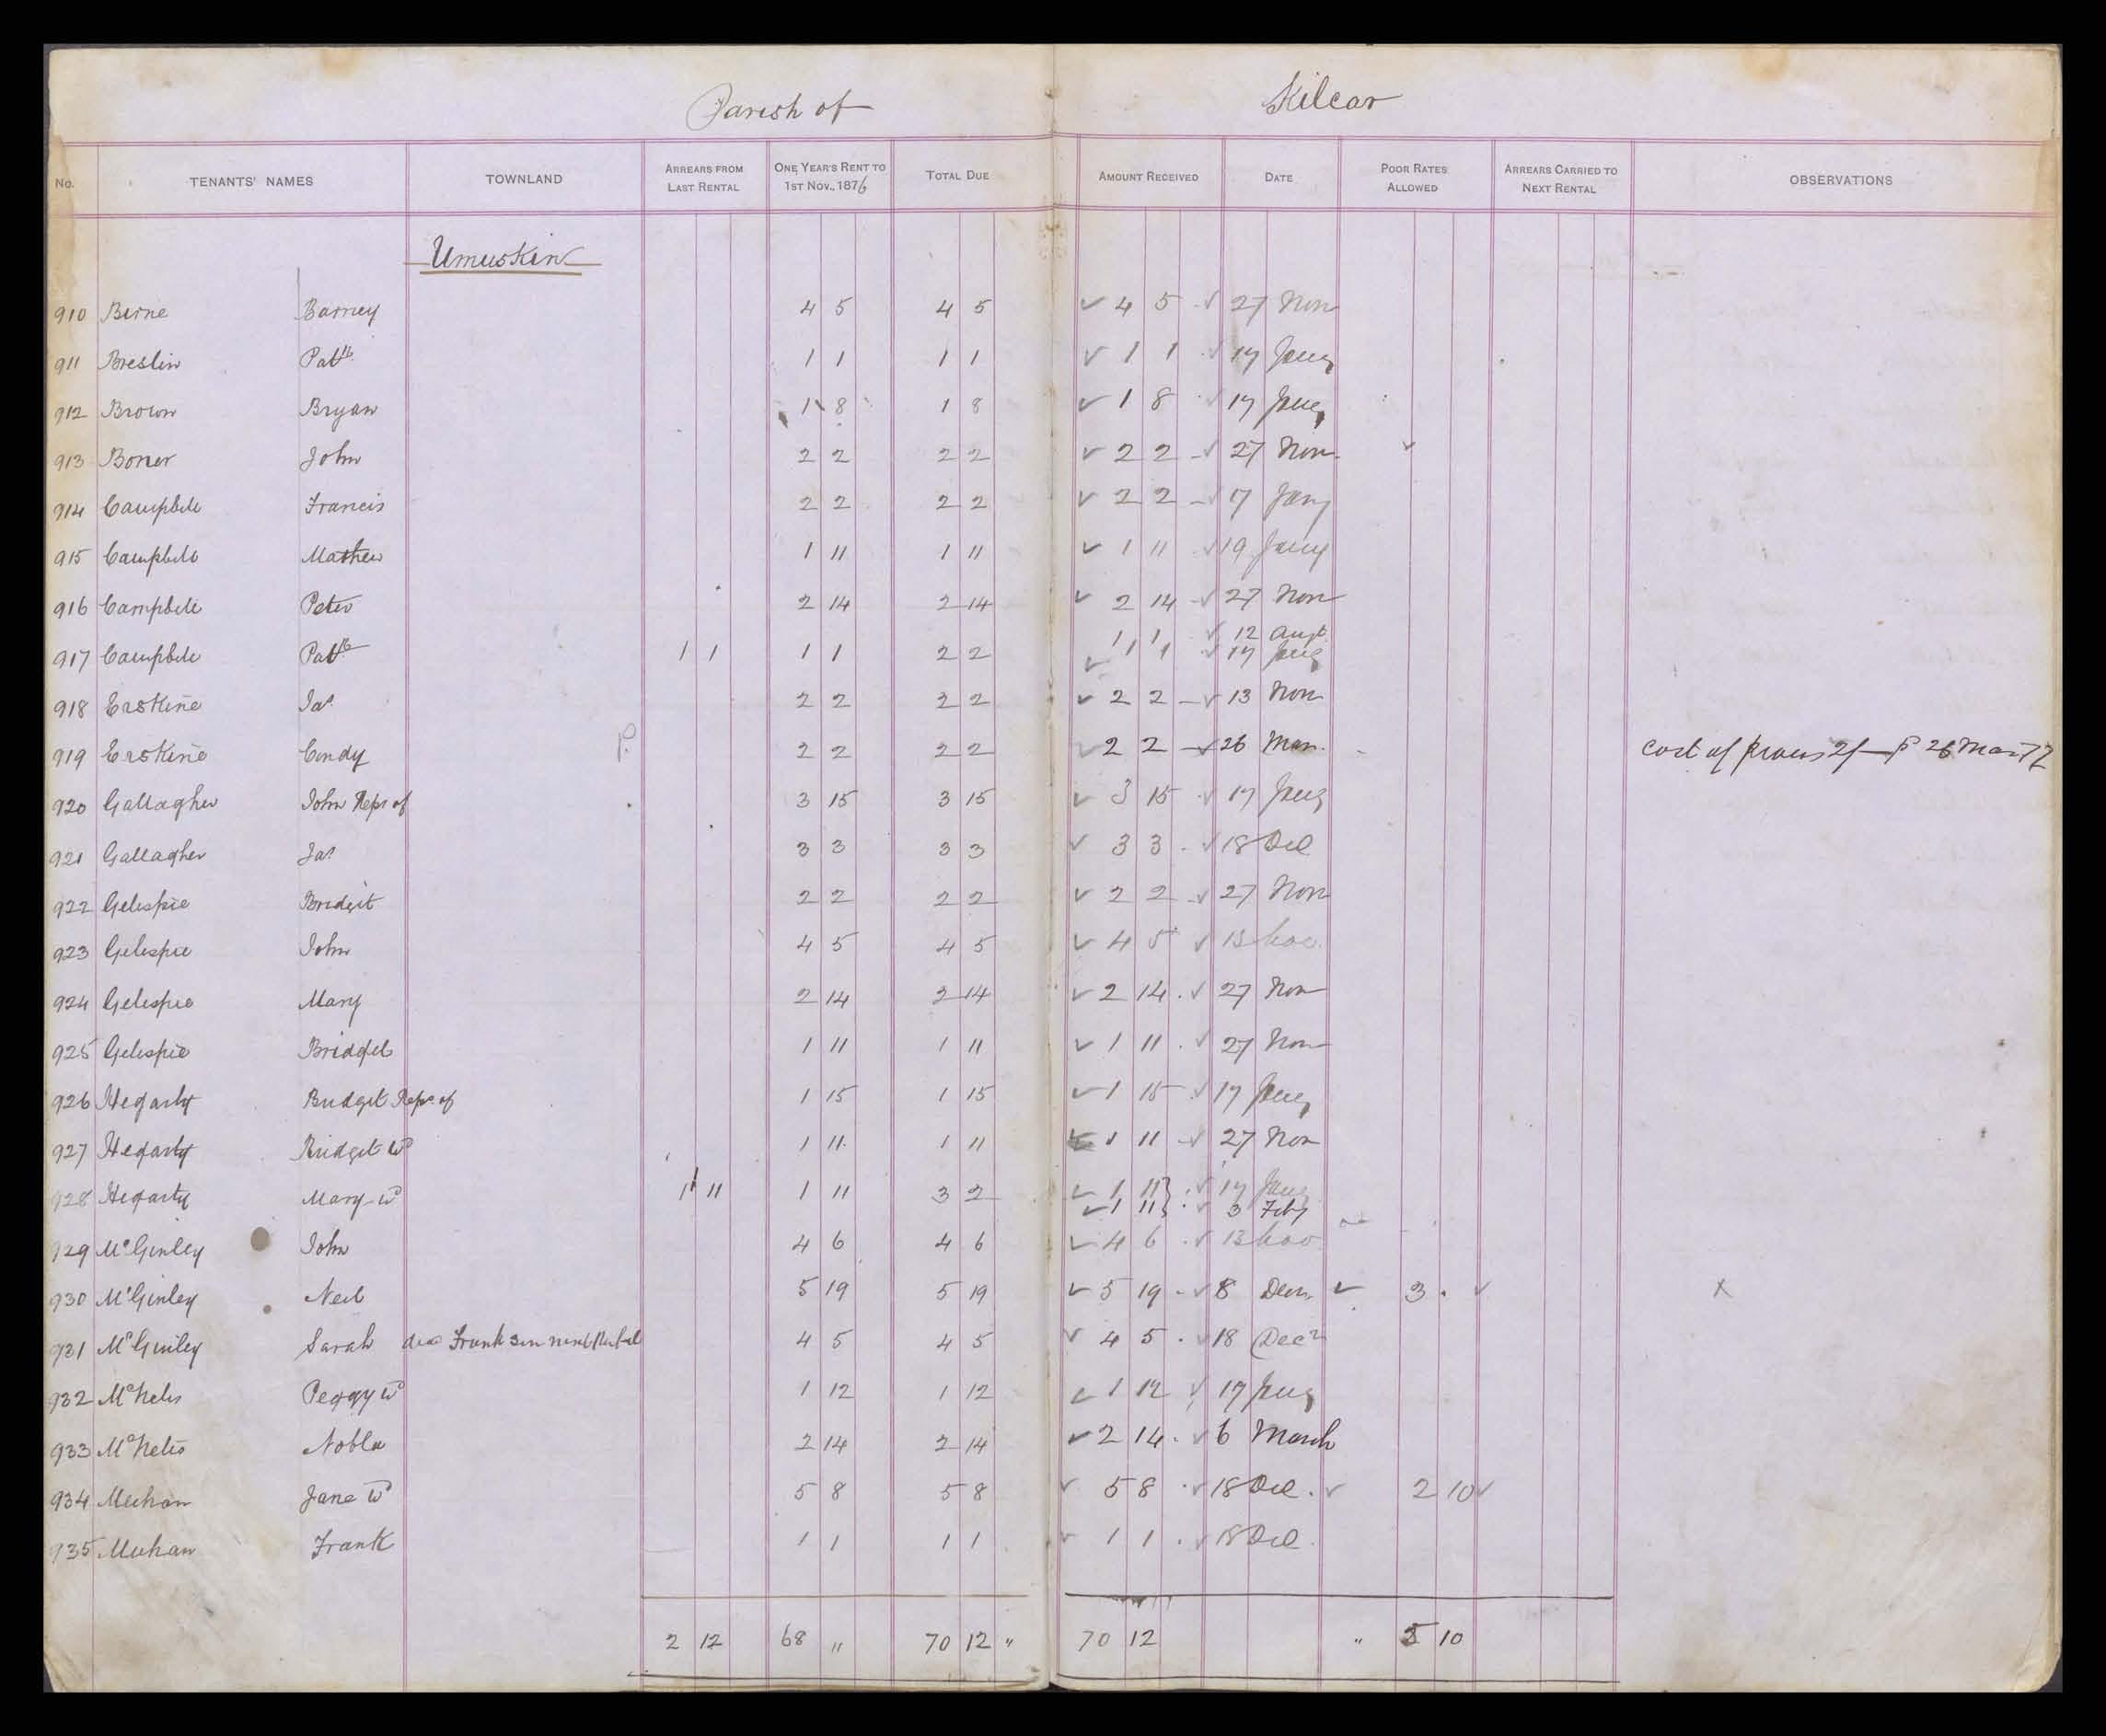 Parish of Kilcar
No. TENANTS' NAMES TOWNLAND ARREARS FROM LAST RENTAL ONE YEAR'S RENT TO 1ST NOV., 1876 TOTAL DUE AMOUNT RECEIVED DATE POOR RATES ALLOWED ARREARS CARRIED TO NEXT RENTAL OBSERVATIONS
Umuskin
910 Birne Barney 4 5 4 5 4 5 27 Nov
911 Breslin Patk 1 1 1 1 1 1 17 Jany
912 Brown Bryan 1 8 1 8 1 8 17 Jany
913 Boner John 2 2 2 2 2 2 27 Nov
914 Campbell Francis 2 2 2 2 2 2 17 Jany
915 Campbell Mathew 1 11 1 11 1 11 19 Jany
916 Campbell Peter 2 14 2 14 2 14 27 Nov
917 Campbell Patk 1 1 1 1 2 2 1 1 12 Augt
1 1 17 Jany
918 Erskine Jas 2 2 2 2 2 2 13 Nov
919 Erskine Condy 2 2 2 2 2 2 26 Mar. cost of proces 2/- p 26 Mar 77
920 Gallagher John Reps of 3 15 3 15 3 15 17 Jany
921 Gallagher Jas 3 3 3 3 3 3 18 Dec
922 Gelespie Bridgit 2 2 2 2 2 2 27 Nov
923 Gelespie John 4 5 4 5 4 5 13 Nov
924 Gelespie Mary 2 14 2 14 2 14 27 Nov
925 Gelespie Bridget 1 11 1 11 1 11 27 Nov
926 Hegarty Bridget Reps of 1 15 1 15 1 15 17 Jany
927 Hegarty Bridget Wd 1 11 1 11 1 11 27 Nov
928 Hegarty Mary Wd 1 11 1 11 3 2 1 11 17 Jany
1 11 3 Feby
929 McGinley John 4 6 4 6 4 6 13 Nov
930 McGinley Neil 5 19 5 19 5 19 8 Decr 3 x
931 McGinley Sarah Frank son next Rental 4 5 4 5 4 5 18 Decr
932 McNelis Peggy Wd 1 12 1 12 1 12 17 Jany
933 McNelis Nobla 2 14 2 14 2 14 6 March
934 Meehan Jane Wd 5 8 5 8 5 8 18 Dec 2 10
935 Meehan Frank 1 1 1 1 1 1 18 Dec
2 12 68 " 70 12 " 70 12 " 5 10